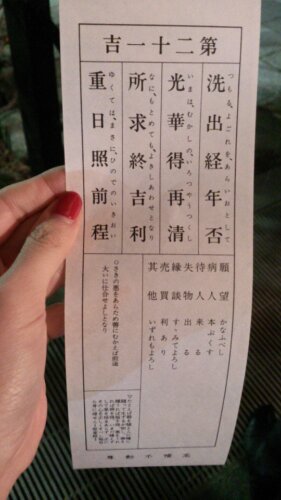 第二十一吉
つもる、よごれを、あらいおとして
洗出経年否
光華得再清
なに、もとめても、よきしあわせとなり
所求終吉利
ゆくては、まさに、ひのでのいきおい
重日照前程
願望 かなふべし
病人 本ぷくす
待人 来る
失物 出る
縁談 すゝみてよろし
売買 利あり
其他 いずれもよろし
○さきの悪をあらため善にむかえば前途
大いに仕合せよしとなり